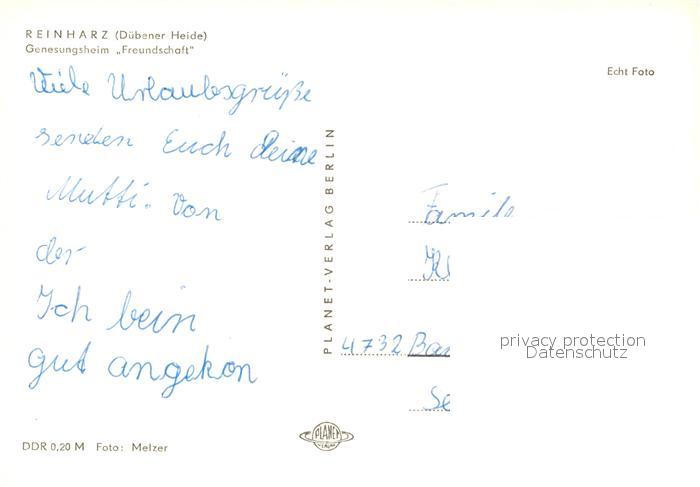 REINHARZ (Dübener Heide)
Genesungsheim „Freundschaft"
Echt Foto
Viele Urlaubsgrüße
senden Euch deine
Mutti. Von
der
Ich bein
gut angekon
PLANET-VERLAG BERLIN
Famile
4732 Ba
Se
privacy protection
Datenschutz
PLANET
VERLAG
DDR 0,20 M Foto: Melzer